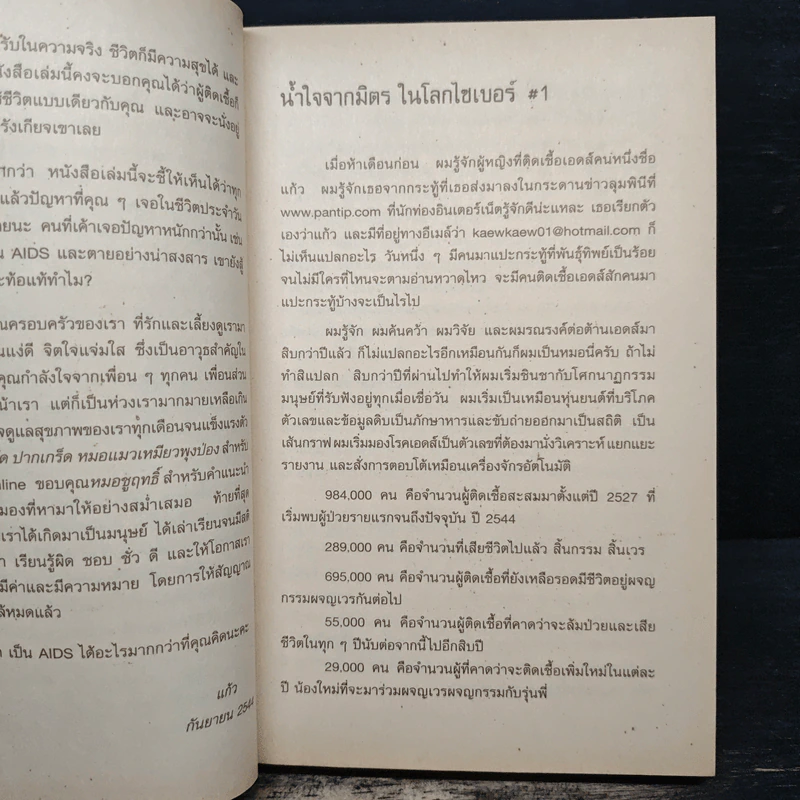 รับในความจริง ชีวิตก็มีความสุขได้ และ
นังสือเล่มนี้คงจะบอกคุณได้ว่าผู้ติดเชื้อก็
ชีวิตแบบเดียวกับคุณ และอาจจะนั่งอยู่
รังเกียจเขาเลย
ศกว่า หนังสือเล่มนี้จะชี้ให้เห็นได้ว่าทุก
แล้วปัญหาที่คุณ ๆ เจอในชีวิตประจำวัน
ยนะ คนที่เค้าเจอปัญหาหนักกว่านั้น เช่น
น AIDS และตายอย่างน่าสงสาร เขายังสู้
ะท้อแท้ทำไม?
ณครอบครัวของเรา ที่รักและเลี้ยงดูเรามา
นแง่ดี จิตใจแจ่มใส ซึ่งเป็นอาวุธสำคัญใน
คุณกำลังใจจากเพื่อน ๆ ทุกคน เพื่อนส่วน
น้าเรา แต่ก็เป็นห่วงเรามากมายเหลือเกิน
จดูแลสุขภาพของเราทุกเดือนจนแข็งแรงตัว
ด ปากเกร็ด หมอแมวเหมียวพุงป่อง สำหรับ
nline ขอบคุณหมอชูฤทธิ์ สำหรับคำแนะนำ
มองที่หามาให้อย่างสม่ำเสมอ ท้ายที่สุด
เราได้เกิดมาเป็นมนุษย์ ได้เล่าเรียนจนมีสติ
า เรียนรู้ผิด ชอบ ชั่ว ดี และให้โอกาสเรา
มีค่าและมีความหมาย โดยการให้สัญญาณ
ล้หมดแล้ว
เป็น AIDS ได้อะไรมากกว่าที่คุณคิดนะคะ
แก้ว
กันยายน 2544
น้ำใจจากมิตร ในโลกไซเบอร์ #1
เมื่อห้าเดือนก่อน ผมรู้จักผู้หญิงที่ติดเชื้อเอดส์คนหนึ่งชื่อ
แก้ว ผมรู้จักเธอจากกระทู้ที่เธอส่งมาลงในกระดานข่าวลุมพินีที่
www.pantip.com ที่นักท่องอินเตอร์เน็ตรู้จักดีน่ะแหละ เธอเรียกตัว
เองว่าแก้ว และมีที่อยู่ทางอีเมล์ว่า kaewkaew01@hotmail.com ก็
ไม่เห็นแปลกอะไร วันหนึ่ง ๆ มีคนมาแปะกระทู้ที่พันธุ์ทิพย์เป็นร้อย
จนไม่มีใครที่ไหนจะตามอ่านหวาดไหว จะมีคนติดเชื้อเอดส์สักคนมา
แปะกระทู้บ้างจะเป็นไรไป
ผมรู้จัก ผมค้นคว้า ผมวิจัย และผมรณรงค์ต่อต้านเอดส์มา
สิบกว่าปีแล้ว ก็ไม่แปลกอะไรอีกเหมือนกันก็ผมเป็นหมอนี่ครับ ถ้าไม่
ทำสิแปลก สิบกว่าปีที่ผ่านไปทำให้ผมเริ่มชินชากับโศกนาฏกรรม
มนุษย์ที่รับฟังอยู่ทุกเมื่อเชื่อวัน ผมเริ่มเป็นเหมือนหุ่นยนต์ที่บริโภค
ตัวเลขและข้อมูลดิบเป็นภักษาหารและขับถ่ายออกมาเป็นสถิติ เป็น
เส้นกราฟ ผมเริ่มมองโรคเอดส์เป็นตัวเลขที่ต้องมานั่งวิเคราะห์ แยกแยะ
รายงาน และสั่งการตอบโต้เหมือนเครื่องจักรอัตโนมัติ
984,000 คน คือจำนวนผู้ติดเชื้อสะสมมาตั้งแต่ปี 2527 ที่
เริ่มพบผู้ป่วยรายแรกจนถึงปัจจุบัน ปี 2544
289,000 คน คือจำนวนที่เสียชีวิตไปแล้ว สิ้นกรรม สิ้นเวร
695,000 คน คือจำนวนผู้ติดเชื้อที่ยังเหลือรอดมีชีวิตอยู่ผจญ
กรรมผจญเวรกันต่อไป
55,000 คน คือจำนวนผู้ติดเชื้อที่คาดว่าจะล้มป่วยและเสีย
ชีวิตในทุก ๆ ปีนับต่อจากนี้ไปอีกสิบปี
29,000 คน คือจำนวนผู้ที่คาดว่าจะติดเชื้อเพิ่มใหม่ในแต่ละ
ปี น้องใหม่ที่จะมาร่วมผจญเวรผจญกรรมกับรุ่นพี่